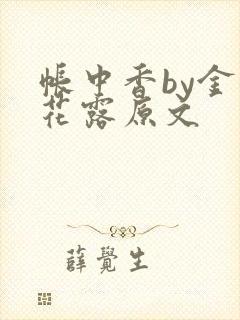 帐中香by金
花露原文
薛覺生